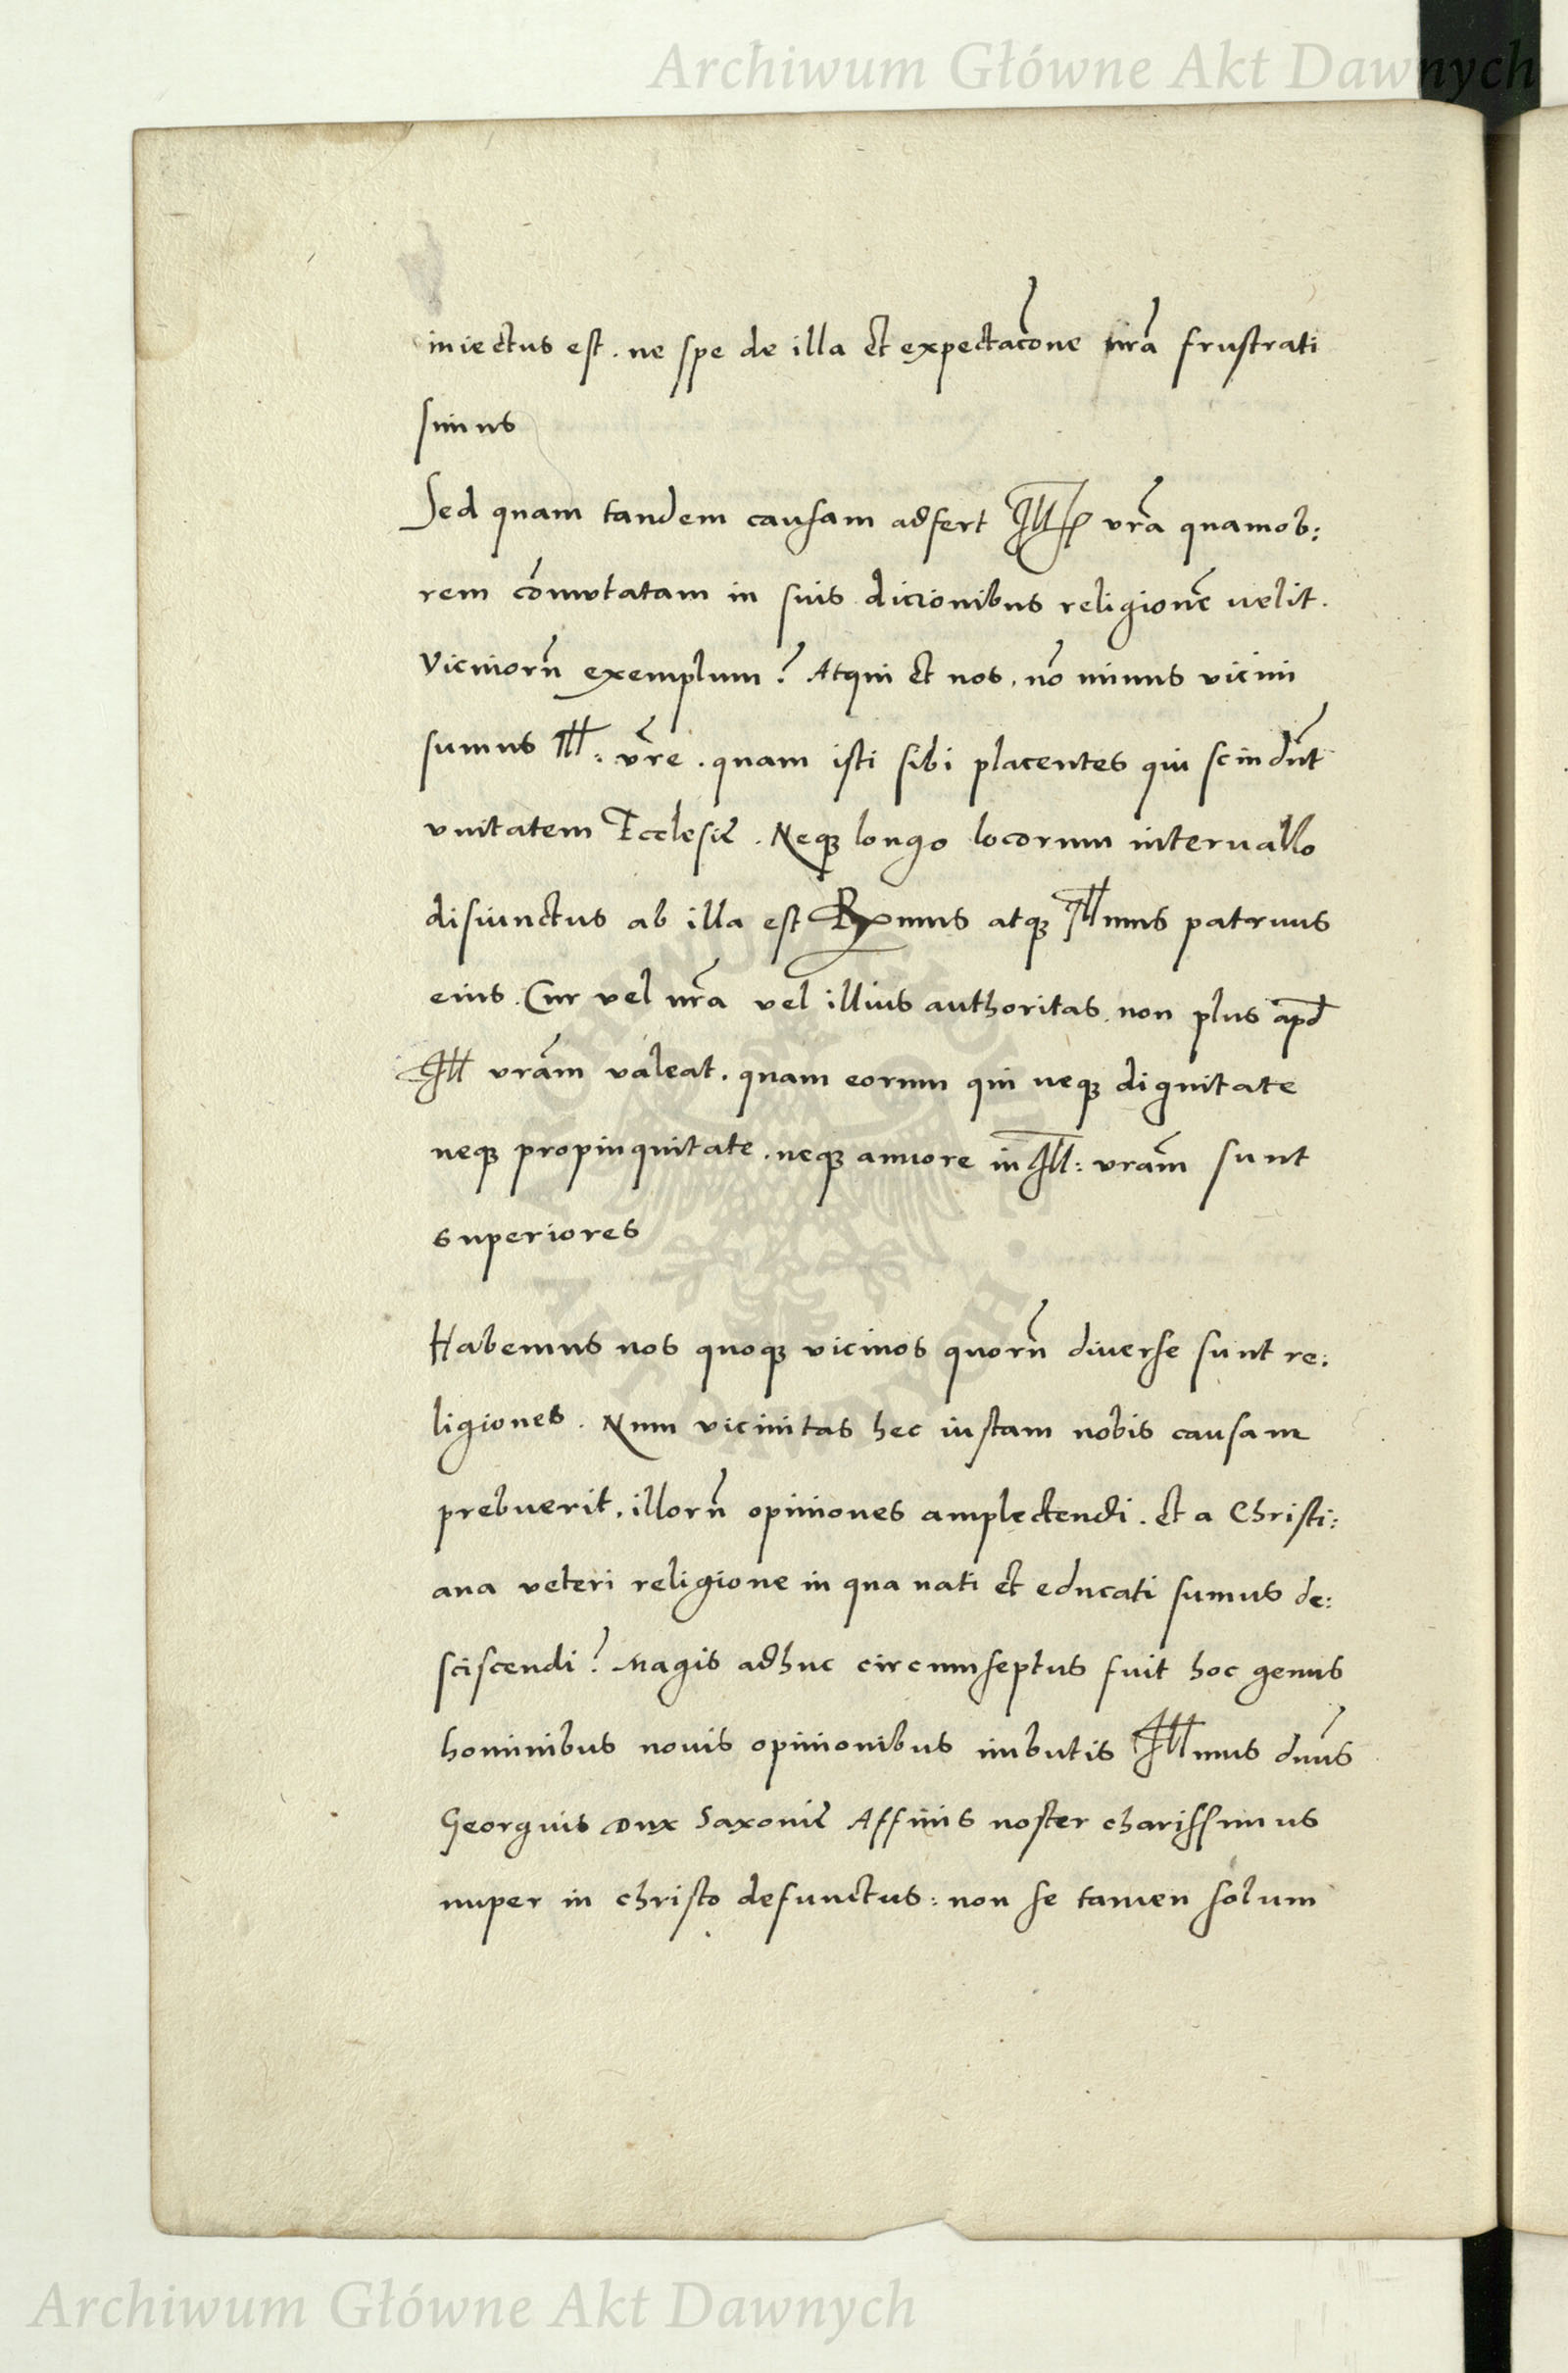 Archiwum Główne Akt Dawnych
iniectus est. ne spe de illa et expectac̃one nr̃a frustrati
simus
Sed quam tandem causam adfert Ill vr̃a quamob:
rem com̃utatam in suis dicionibus religionẽ uelit.
Viciniorũ exemplum? Atqui et nos, nõ minus vicini
sumus Ill: vr̃e. quam isti sibi placentes qui scindũt
vnitatem Ecclesię. Neqꝫ longo locorum interuallo
disiunctus ab illa est Rx̃mus atqꝫ Illmus patruus
eius. Cur vel nr̃a vel illius authoritas, non plus apd̃
Ill vr̃am valeat. quam eorum qui neqꝫ dignitate
neqꝫ propinquitate, neqꝫ amore in Ill: vr̃am sunt
superiores
Habemus nos quoqꝫ vicinos quorũ diuerse sunt re:
ligiones. Num vicinitas hec iustam nobis causam
prebuerit, illorũ opiniones amplectendi. et a Christi:
ana veteri religione in qua nati et educati sumus de:
sciscendi? Magis adhuc circumseptus fuit hoc genus
hominibus nouis opinionibus imbutis Illmus dñus
Georgius Dux Saxonię Affinis noster charissimus
nuper in christo defunctus: non se tamen solum
ARCHIWUM GŁÓWNE
AKT DAWNYCH
Archiwum Główne Akt Dawnych